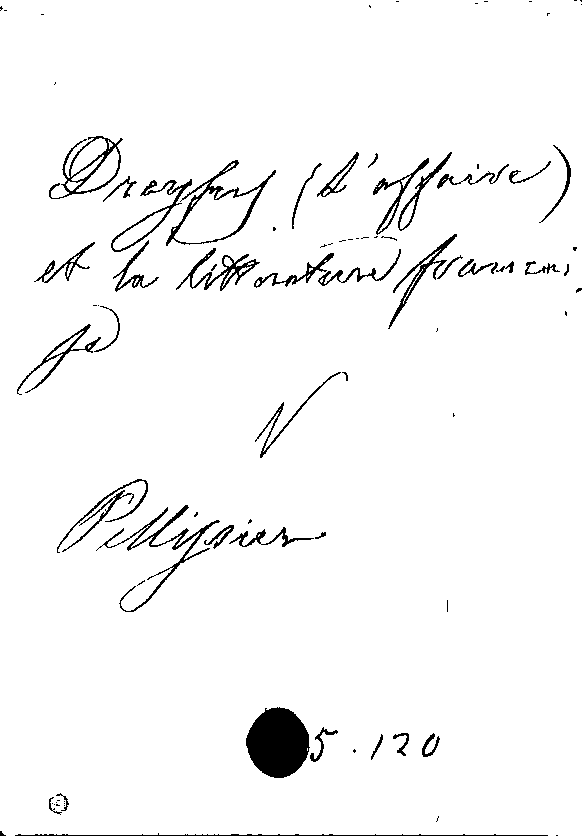 Dreyfus (L'affaire)
et la littérature françai
se
V
Pellissier
5.120